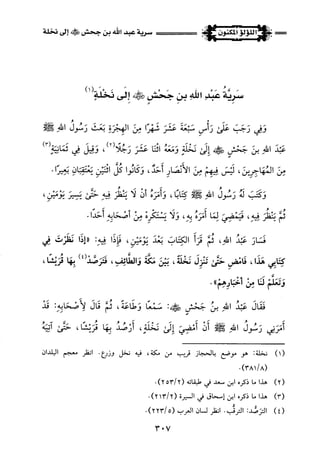 اللؤلؤ المكنون
سرية عبد الله بن جحش ﷺ إلى نخلة
سَرِيَّةُ عَبْدِ اللهِ بنِ جَحْشٍ ﷺ إِلَى نَخْلَةَ(١)
وَفِي رَجَبَ عَلَى رَأْسِ سَبْعَةَ عَشَرَ شَهْرًا مِنَ الهِجْرَةِ بَعَثَ رَسُولُ اللهِ ﷺ
عَبْدَ اللهِ بنَ جَحْشٍ ﷺ إِلَى نَخْلَةَ وَمَعَهُ اثْنَا عَشَرَ رَجُلًا(٢)، وَقِيلَ فِي ثَمَانِيَةٍ(٣)
مِنَ المُهَاجِرِينَ، لَيْسَ فِيهِمْ مِنَ الأَنْصَارِ أَحَدٌ، وَكَانُوا كُلُّ اثْنَيْنِ يَعْتَقِبَانِ بَعِيرًا.
وَكَتَبَ لَهُ رَسُولُ اللهِ ﷺ كِتَابًا، وَأَمَرَهُ أَنْ لَا يَنْظُرَ فِيهِ حَتَّى يَسِيرَ يَوْمَيْنِ،
ثُمَّ يَنْظُرَ فِيهِ، فَيَمْضِيَ لِمَا أَمَرَهُ بِهِ، وَلَا يَسْتَكْرِهَ مِنْ أَصْحَابِهِ أَحَدًا.
فَسَارَ عَبْدُ اللهِ، ثُمَّ قَرَأَ الكِتَابَ بَعْدَ يَوْمَيْنِ، فَإِذَا فِيهِ: «إِذَا نَظَرْتَ فِي
كِتَابِي هَذَا، فَامْضِ حَتَّى تَنْزِلَ نَخْلَةَ، بَيْنَ مَكَّةَ وَالطَّائِفِ، فَتَرَصَّدْ(٤) بِهَا قُرَيْشًا،
وَتَعَلَّمْ لَنَا مِنْ أَخْبَارِهِمْ».
فَقَالَ عَبْدُ اللهِ بنُ جَحْشٍ ﷺ: سَمْعًا وَطَاعَةً، ثُمَّ قَالَ لِأَصْحَابِهِ: قَدْ
أَمَرَنِي رَسُولُ اللهِ ﷺ أَنْ أَمْضِيَ إِلَى نَخْلَةَ، أَرْصُدُ بِهَا قُرَيْشًا، حَتَّى آتِيَهُ
(١) نخلة: هو موضع بالحجاز قريب من مكة، فيه نخل وزرع. انظر معجم البلدان
(٣٨١/٨).
(٢) هذا ما ذكره ابن سعد في طبقاته (٢٥٣/٢).
(٣) هذا ما ذكره ابن إسحاق في السيرة (٢١٣/٢).
(٤) الترصُّد: الترقُّب. انظر لسان العرب (٢٢٣/٥).
٣٠٧